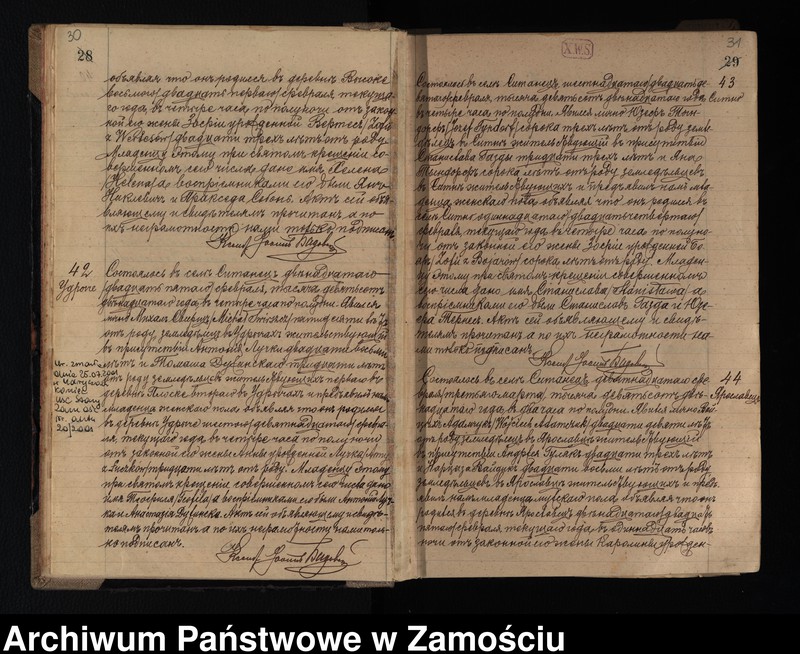 30
28
объявляя что онъ родился въ деревнѣ Высоке
восьмого/двадцать перваго/февраля текуща-
го года, въ четыре часа по полуночи отъ закон-
ной его жены Зофіи урожденной Вертесъ/Zofia
z Wertosów/двадцати трехъ лѣтъ отъ роду.
Младенцу этому при святомъ крещеніи со-
вершенномъ сего числа дано имя Хелена
/Helena/а воспріемниками его были Янъ
и Пракседа Собонь. Актъ сей объ-
являющему и свидѣтелямъ прочитанъ а по
ихъ неграмотности нами только подписанъ
42
Удрыче
Состоялось въ селѣ Ситанецъ двѣнадцатаго
/двадцать пятаго/февраля, тысяча девятьсотъ
двѣнадцатаго года, въ четыре часа по полудни. Явился
лично Михалъ
отъ роду, земледѣлецъ въ Удрычахъ жительствующій
въ присутствіи Антонія Лучки двадцати восьми
лѣтъ и Томаша Дубинскаго тридцати лѣтъ
отъ роду земледѣльцевъ жительствующихъ первый въ
деревнѣ Плоске второй въ Удрычахъ и предъявилъ намъ
младенца женскаго пола объявляя что онъ родился
въ деревнѣ Удрыче шестого/девятнадцатаго/февра-
ля текущаго года, въ четыре часа по полуночи
отъ законной его жены Анны урожденной Лучка/Anna
z Łuczków/тридцати лѣтъ отъ роду. Младенцу этому
при святомъ крещеніи совершенномъ сего числа дано
имя Теофиля/Teofila/а воспріемниками его были Антоній Луч-
ка и Анастазія Дубинска. Актъ сей объявляющему и свидѣ-
телямъ прочитанъ а по ихъ неграмотности нами толь-
ко подписанъ.
31
X.W.S
29
43
Ситно
Состоялось въ селѣ Ситанецъ шестнадцатаго/двадцать де-
вятаго/февраля, тысяча девятьсотъ двѣнадцатаго года,
въ четыре часа по полудни. Явился лично Юзефъ Тын-
дорфъ/Józef Tyndorf/сорока трехъ лѣтъ отъ роду земле-
дѣлецъ въ Ситнѣ жительствующій въ присутствіи
Станислава Газды тридцати трехъ лѣтъ и Яна
Тындорфъ сорока лѣтъ отъ роду земледѣльцевъ
въ Ситнѣ жительствующихъ и предъявилъ намъ мла-
денца женскаго пола объявляя что онъ родился въ
селѣ Ситно одиннадцатаго/двадцать четвертаго/
февраля, текущаго года, въ четыре часа по полуно-
чи отъ законной его жены Зофіи урожденной Бо-
яръ/Zofii z Bojarów/сорока лѣтъ отъ роду. Младен-
цу этому при святомъ крещеніи совершенномъ
сего числа дано имя Станислава/Stanisława/а
воспріемниками его были Станиславъ Газда и Юзе-
фа Тернесъ. Актъ сей объявляющему и свидѣ-
телямъ прочитанъ а по ихъ неграмотности на-
ми только подписанъ
44
Ярославецъ
Состоялось въ селѣ Ситанецъ девятнадцатаго фев-
раля/третьяго марта/тысяча девятьсотъ двѣ-
надцатаго года въ два часа по полудни. Явился лично Вой-
цехъ Адамчукъ/Wojciech Adamczuk/двадцати девяти лѣтъ
отъ роду земледѣлецъ въ Ярославцѣ жительствующій
въ присутствіи Андрея Гуляка двадцати трехъ лѣтъ
и двадцати восьми лѣтъ отъ роду
земледѣльцевъ въ Ярославцѣ жительствующихъ и предъ-
явилъ намъ младенца мужскаго пола объявляя что онъ
родился въ деревнѣ Ярославецъ двѣнадцатаго/двадцать
пятаго/февраля, текущаго года, въ одиннадцать часовъ
ночи отъ законной его жены Каролины урожден-
Archiwum Państwowe w Zamościu